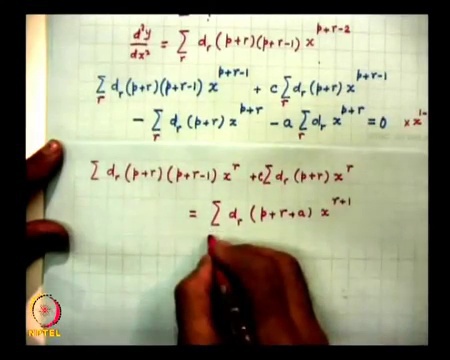 d²y/dx² = Σ_r d_r (p+r)(p+r-1) x^{p+r-2}
Σ_r d_r (p+r)(p+r-1) x^{p+r-1} + c Σ_r d_r (p+r) x^{p+r-1}
- Σ_r d_r (p+r) x^{p+r} - a Σ_r d_r x^{p+r} = 0 × x^{1-
Σ d_r (p+r)(p+r-1) x^r + c Σ d_r (p+r) x^r
= Σ d_r (p+r+a) x^{r+1}
NPTEL